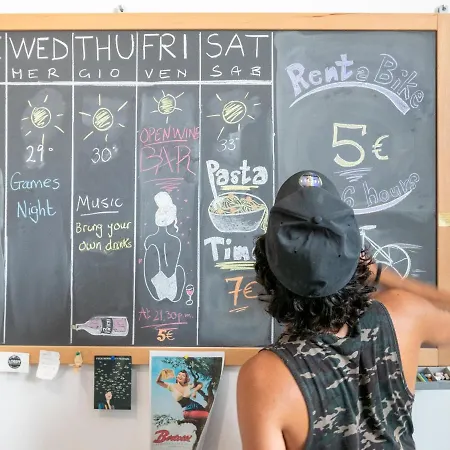 WED
MER
29°
Games
Night
THU
GIO
30°
Music
Bring your
own drinks
FRI
VEN
OPEN WINE
BAR
At 8.30 p.m.
5€
SAT
SAB
33°
Pasta
Time
7€
At 21.30
Rent a Bike
5€
6 hours